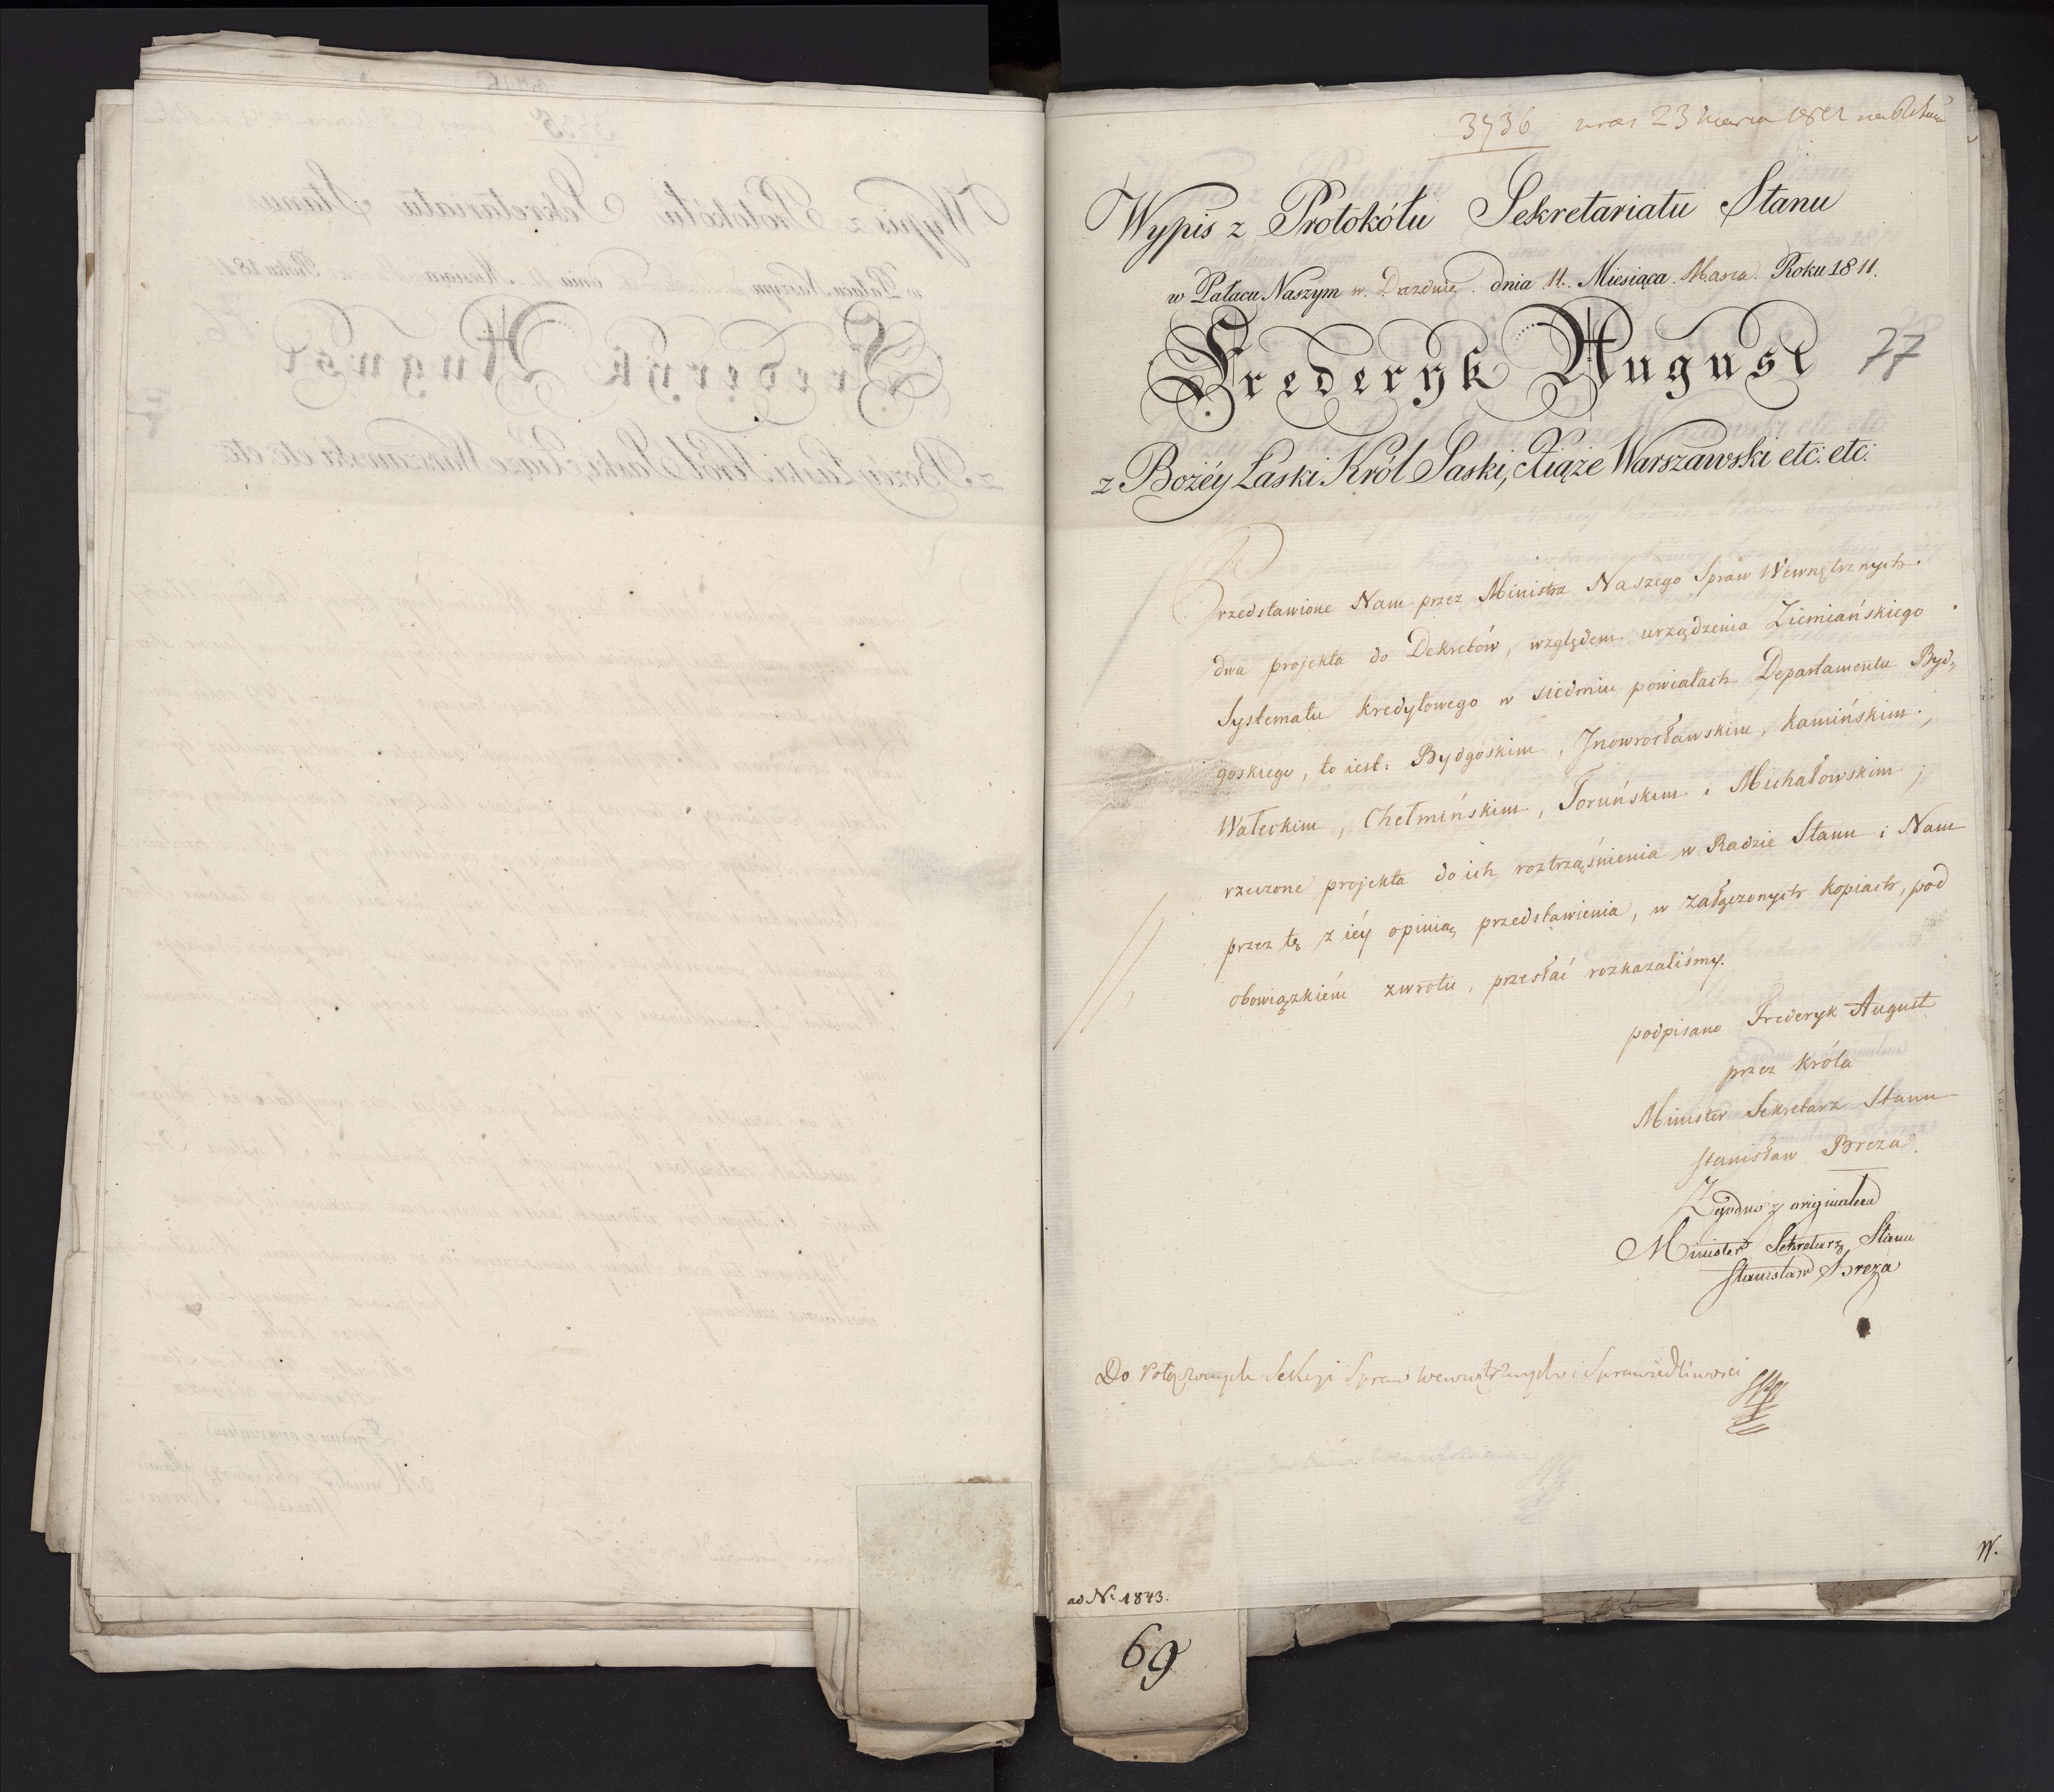 3736 23 1811
Wypis z Protokółu Sekretariatu Stanu
w Pałacu Naszym w Dreznie dnia 11. Miesiąca Marca Roku 1811.
Frederyk August
77
z Bożéy Łaski Król Saski, Xiąże Warszawski etc: etc:
Przedstawione Nam przez Ministra Naszego Spraw Wewnętrznych
dwa projekta do Dekretów, względem urządzenia Ziemiańskiego
Systematu kredytowego w siedmiu powiatach Departamentu Byd„
goskiego, to iest: Bydgoskim, Jnowrocławskim, Kamińskim,
Wałeckim, Chełmińskim, Toruńskim i Michałowskim;
rzeczone projekta do ich roztrząśnienia w Radzie Stanu i Nam
przez tę z iéy opinią przedstawienia, w załączonych kopiach, pod
obowiązkiem zwrotu, przesłać rozkazaliśmy.
podpisano Frederyk August
przez Króla
Minister Sekretarz Stanu
Stanisław Breza
Zgodno z originałem
Minister Sekretarz Stanu
Stanisław Breza
Do Połączonych Sekcyi Spraw wewnętrznych i Sprawiedliwości
W.
ad Nr 1843.
69